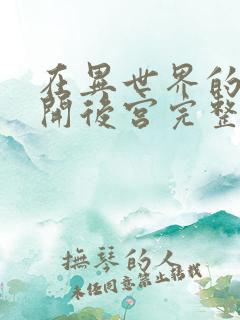 在異世界的
開後宮完整
撫琴的人
未经同意禁止转载